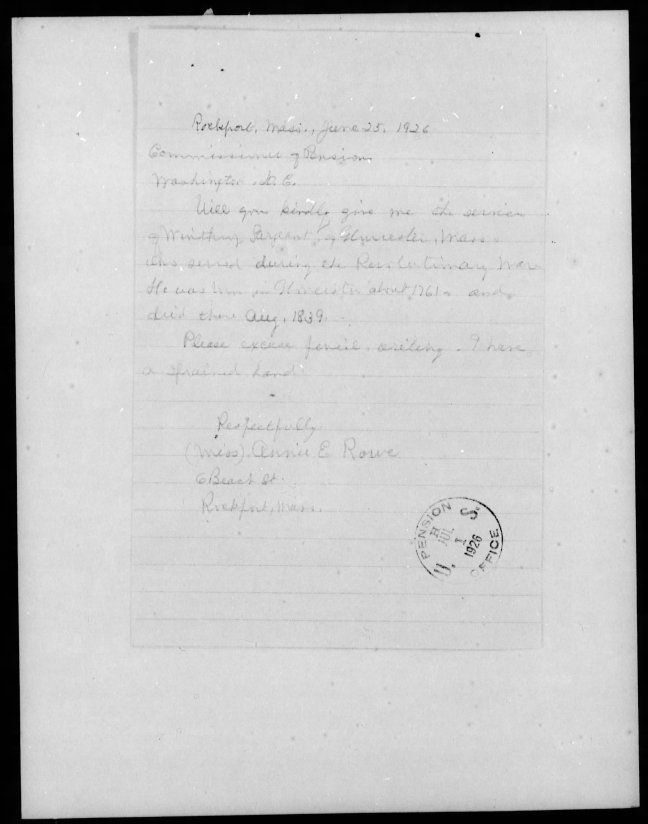 Rockport, Mass., June 25, 1926
Commissioner of Pensions
Washington, D. C.
Will you kindly give me the service
of Winthrop Sargent, of Gloucester, Mass.
who served during the Revolutionary War
He was born in Gloucester about 1761 and
died there Aug. 1839.
Please excuse pencil writing. I have
a sprained hand
Respectfully
(Miss) Annie E. Rowe
6 Beach St.
Rockport, Mass.
U. S. PENSION OFFICE
JUL
1
1926